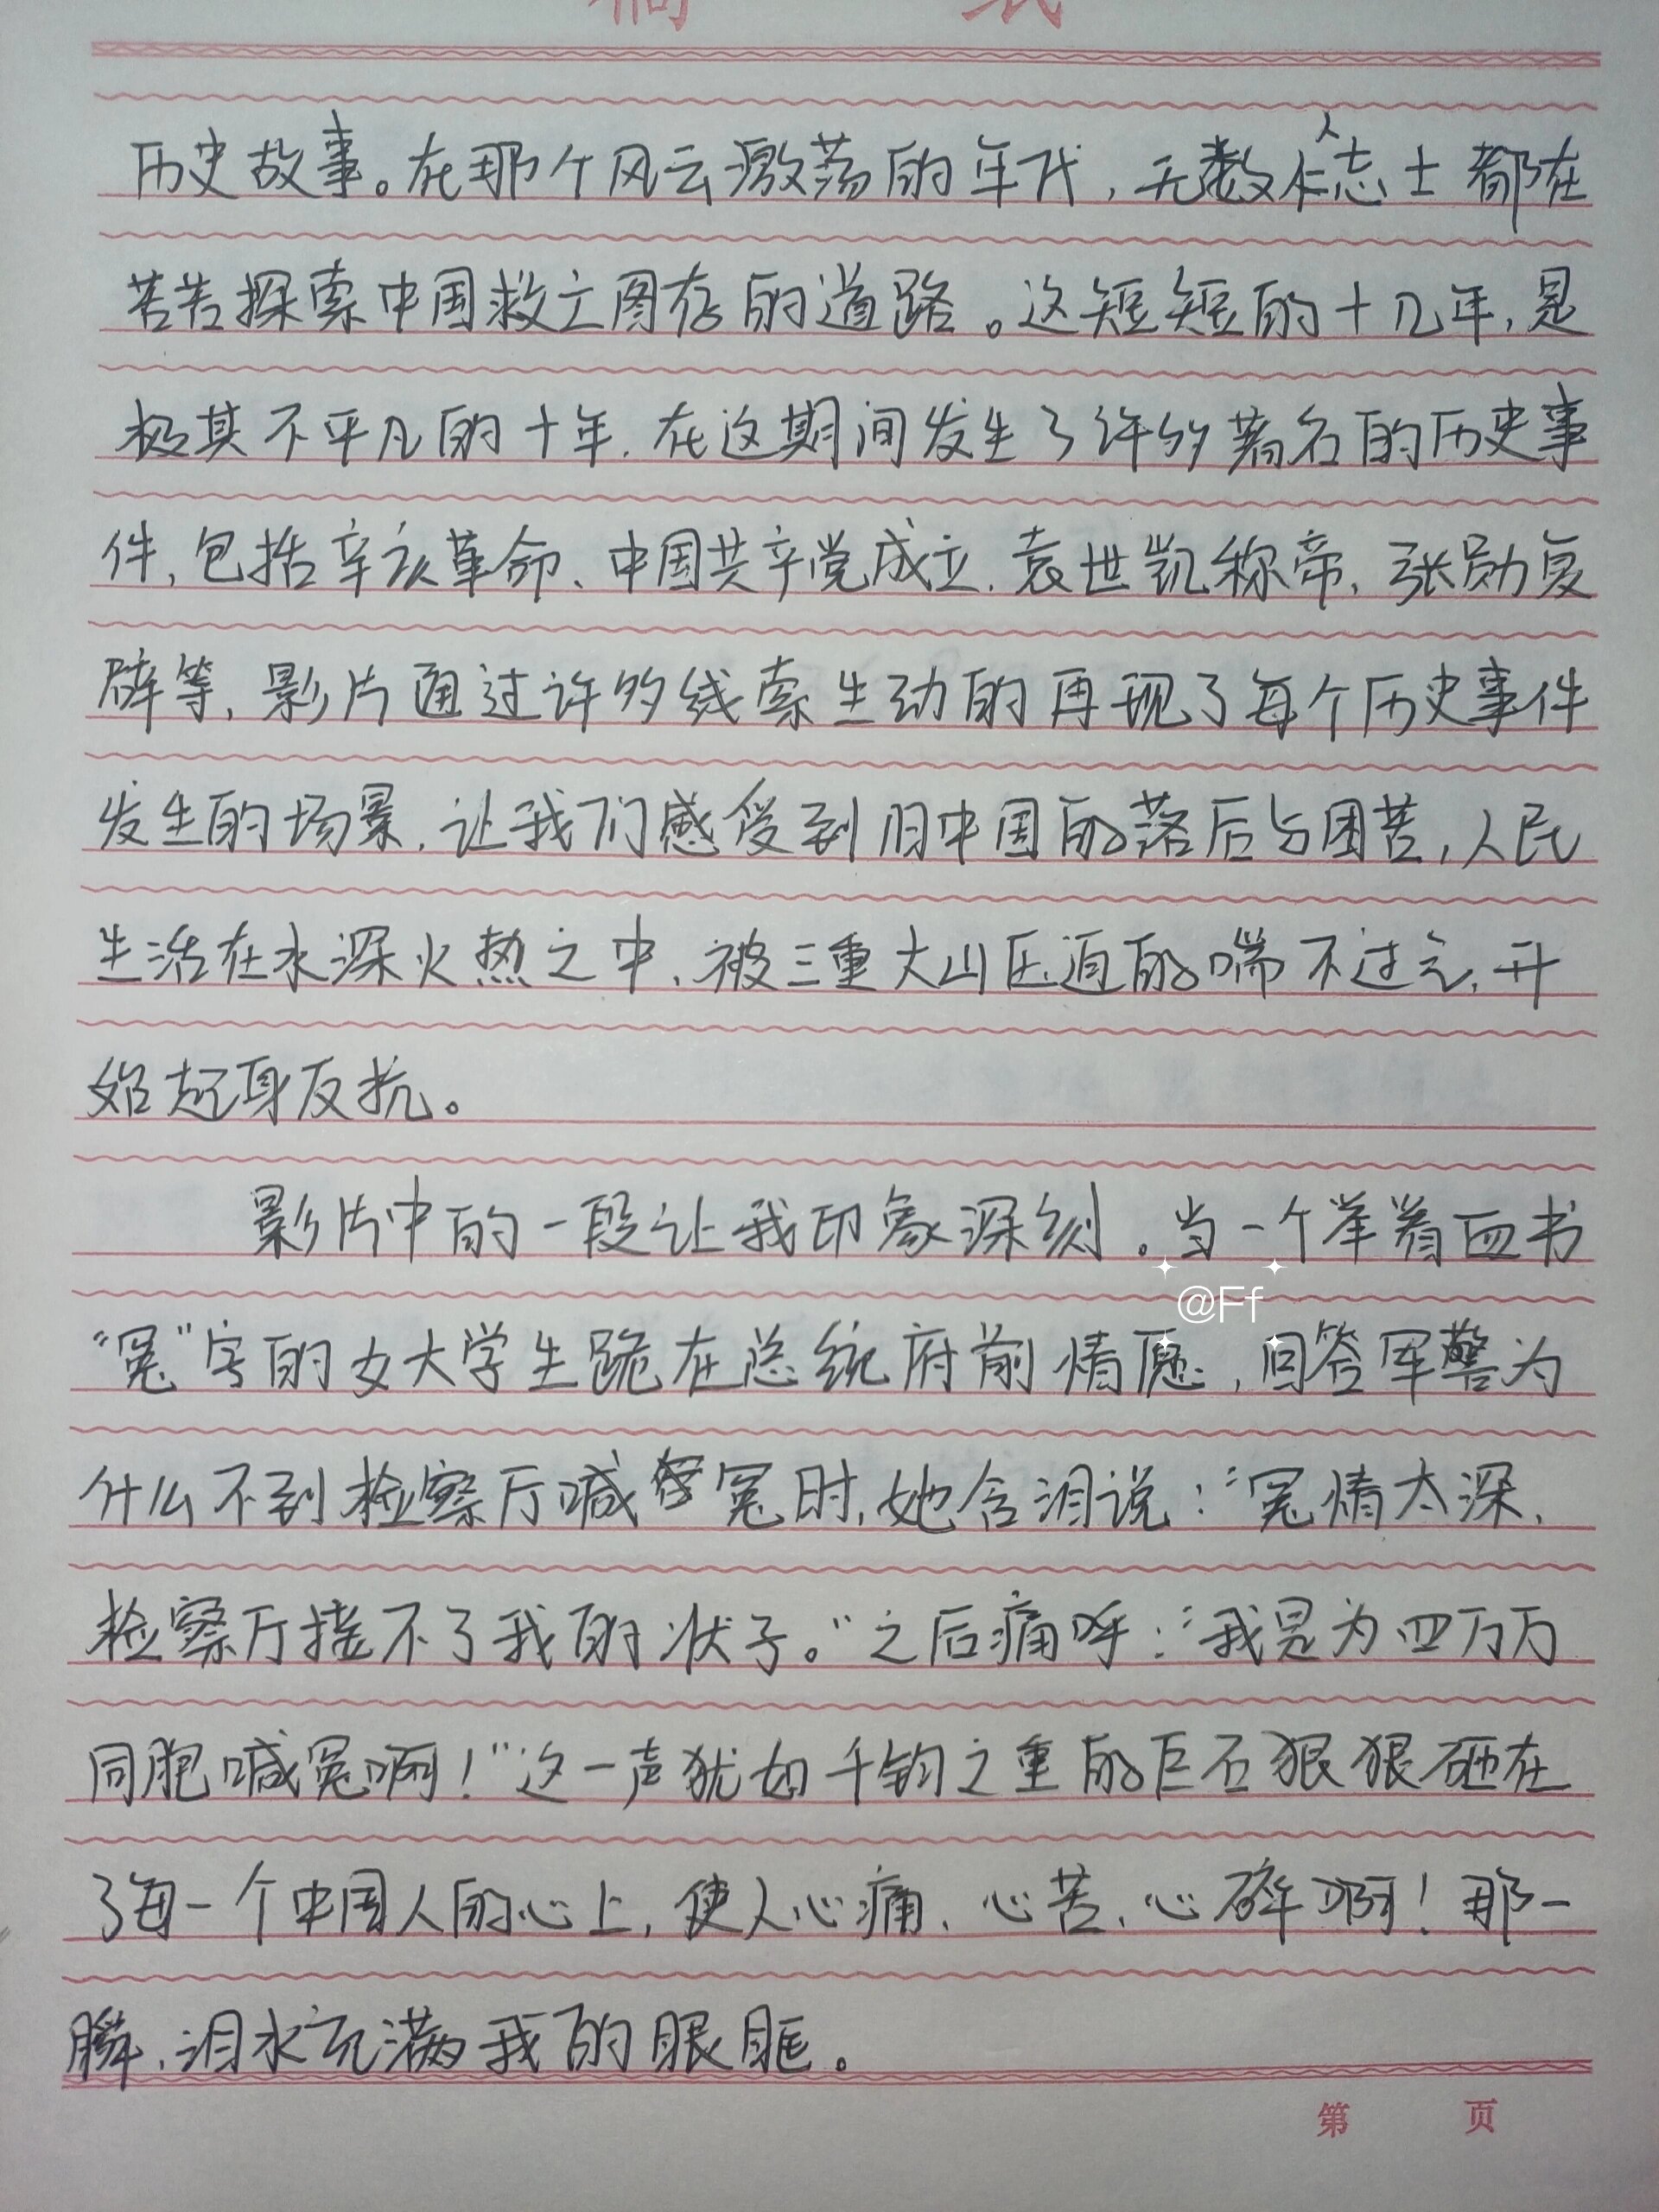 稿 纸
历史故事。在那个风云激荡的年代，无数仁人志士都在
苦苦探索中国救亡图存的道路。这短短的十几年，是
极其不平凡的十年，在这期间发生了许多著名的历史事
件，包括辛亥革命、中国共产党成立、袁世凯称帝、张勋复
辟等，影片通过许多线索生动的再现了每个历史事件
发生的场景，让我们感受到旧中国的落后与困苦，人民
生活在水深火热之中，被三重大山压迫的喘不过气，开
始起身反抗。
影片中的一段让我印象深刻。当一个举着血书
“冤”字的女大学生跪在总统府前情愿，回答军警为
什么不到检察厅喊冤时，她含泪说：“冤情太深，
检察厅接不了我的状子。”之后痛呼：“我是为四万万
同胞喊冤啊！”这一声犹如千钧之重的巨石狠狠砸在
了每一个中国人的心上，使人心痛、心苦、心碎啊！那一
瞬，泪水充满我的眼眶。
@Ff
第 页